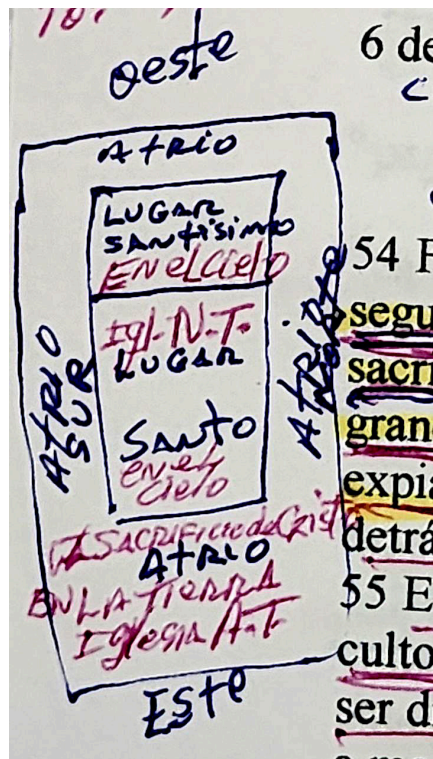 Oeste
AtRio
LUGAR
SANtísimo
EN el Cielo
Igl. N.T.
LUGAR
SANto
en el
Cielo
AtRIO
SUR
AtRIO
SACRIFICIO de Crist
AtRIO
EN LA TIERRA
Iglesia A.T.
Este
6 de
54 F
segu
sacri
gran
expia
detrá
55 E
culto
ser di